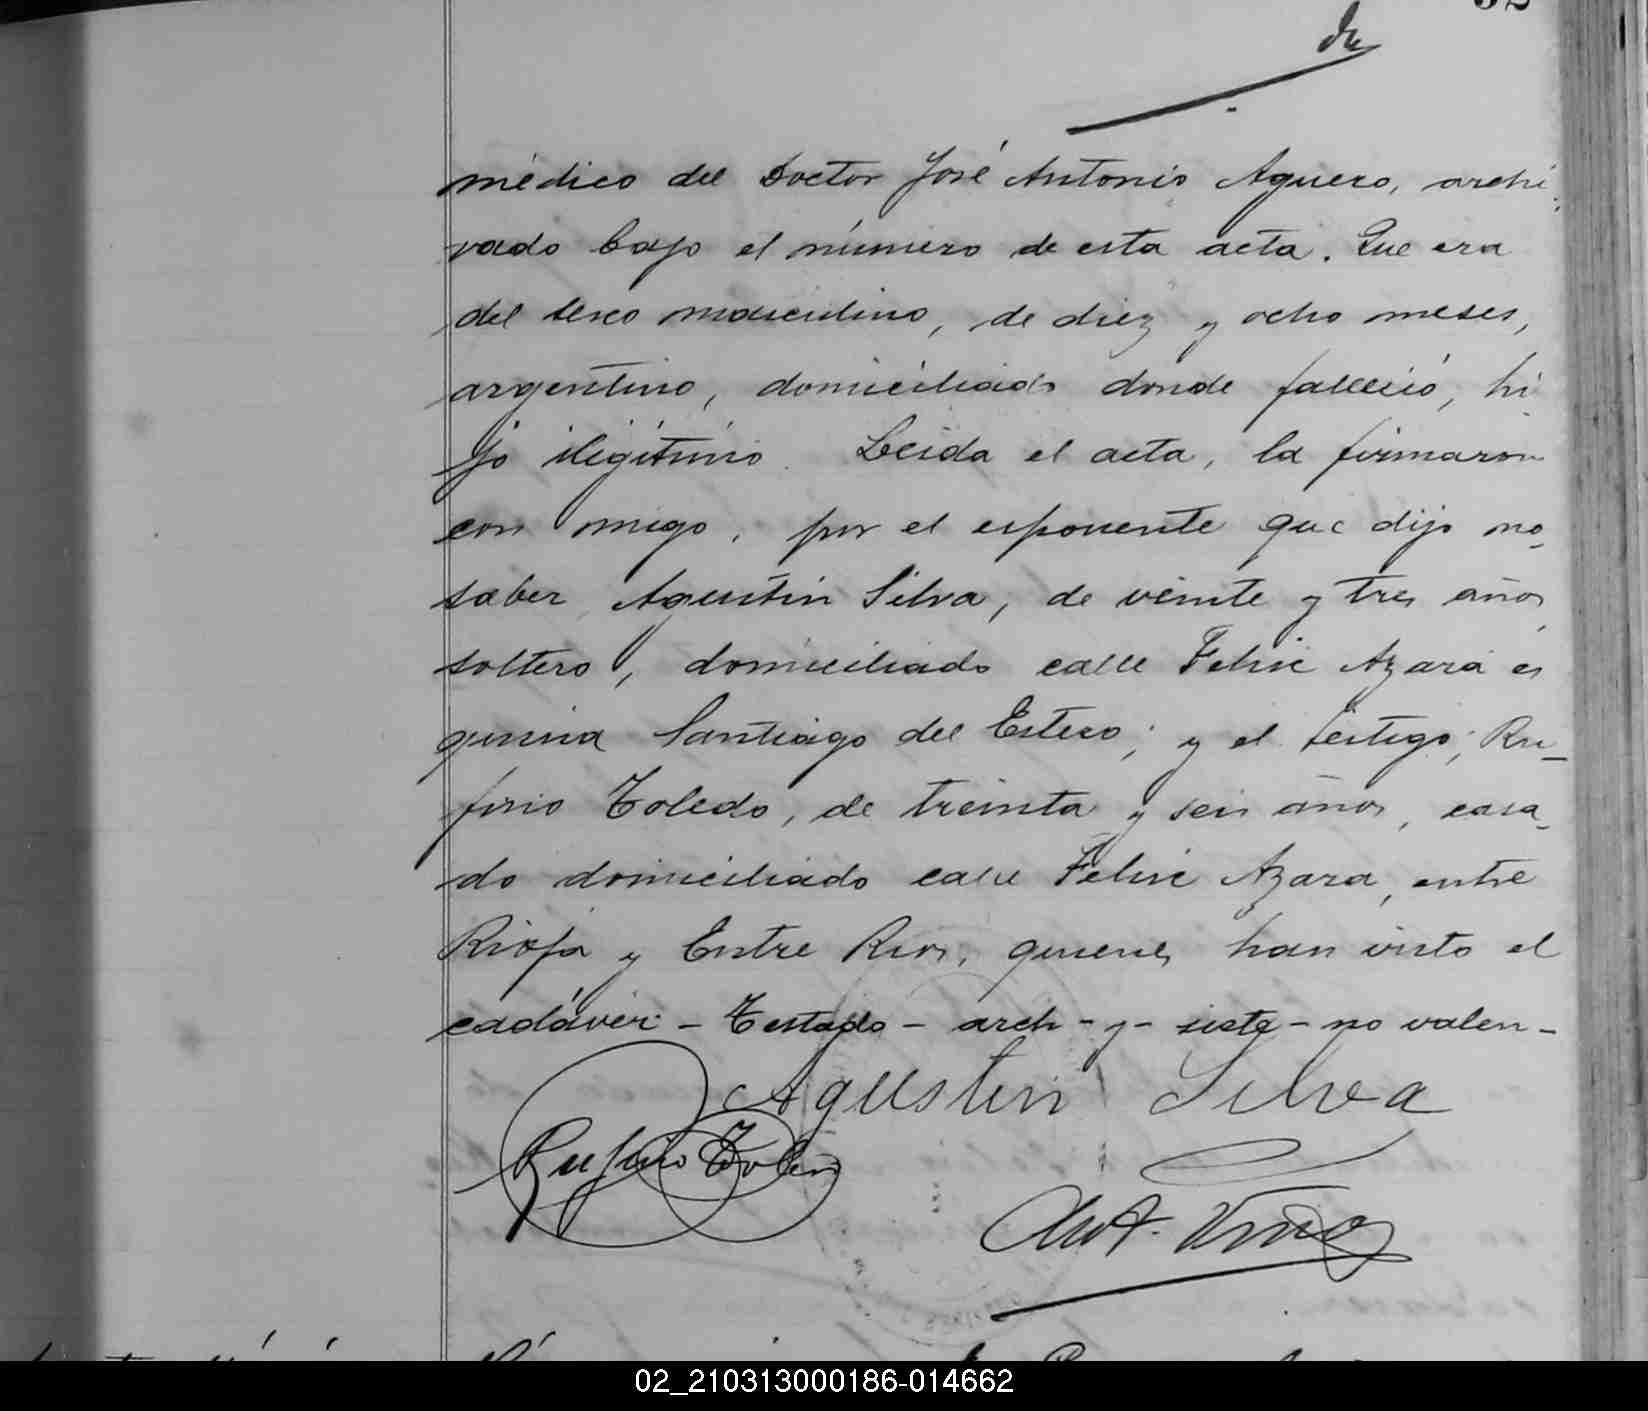 médico del Doctor José Antonio Aguero, archi-
vado bajo el número de esta acta. Que era
del sexo masculino, de diez y ocho meses,
argentino, domiciliado donde falleció, hi
jo ilegítimo. Leida el acta, la firmaron
con migo, por el esponente que dijo no
saber, Agustin Silva, de veinte y tres años,
soltero, domiciliado calle Felix Azara es
quina Santiago del Estero; y el testigo, Ru-
fino Toledo, de treinta y seis años, casa-
do domiciliado calle Felix Azara, entre
Rioja y Entre Rios, quienes han visto el
cadáver - Testado - arch - y - siete - no valen -
Agustin Silva
Rufino Toledo
02_210313000186-014662